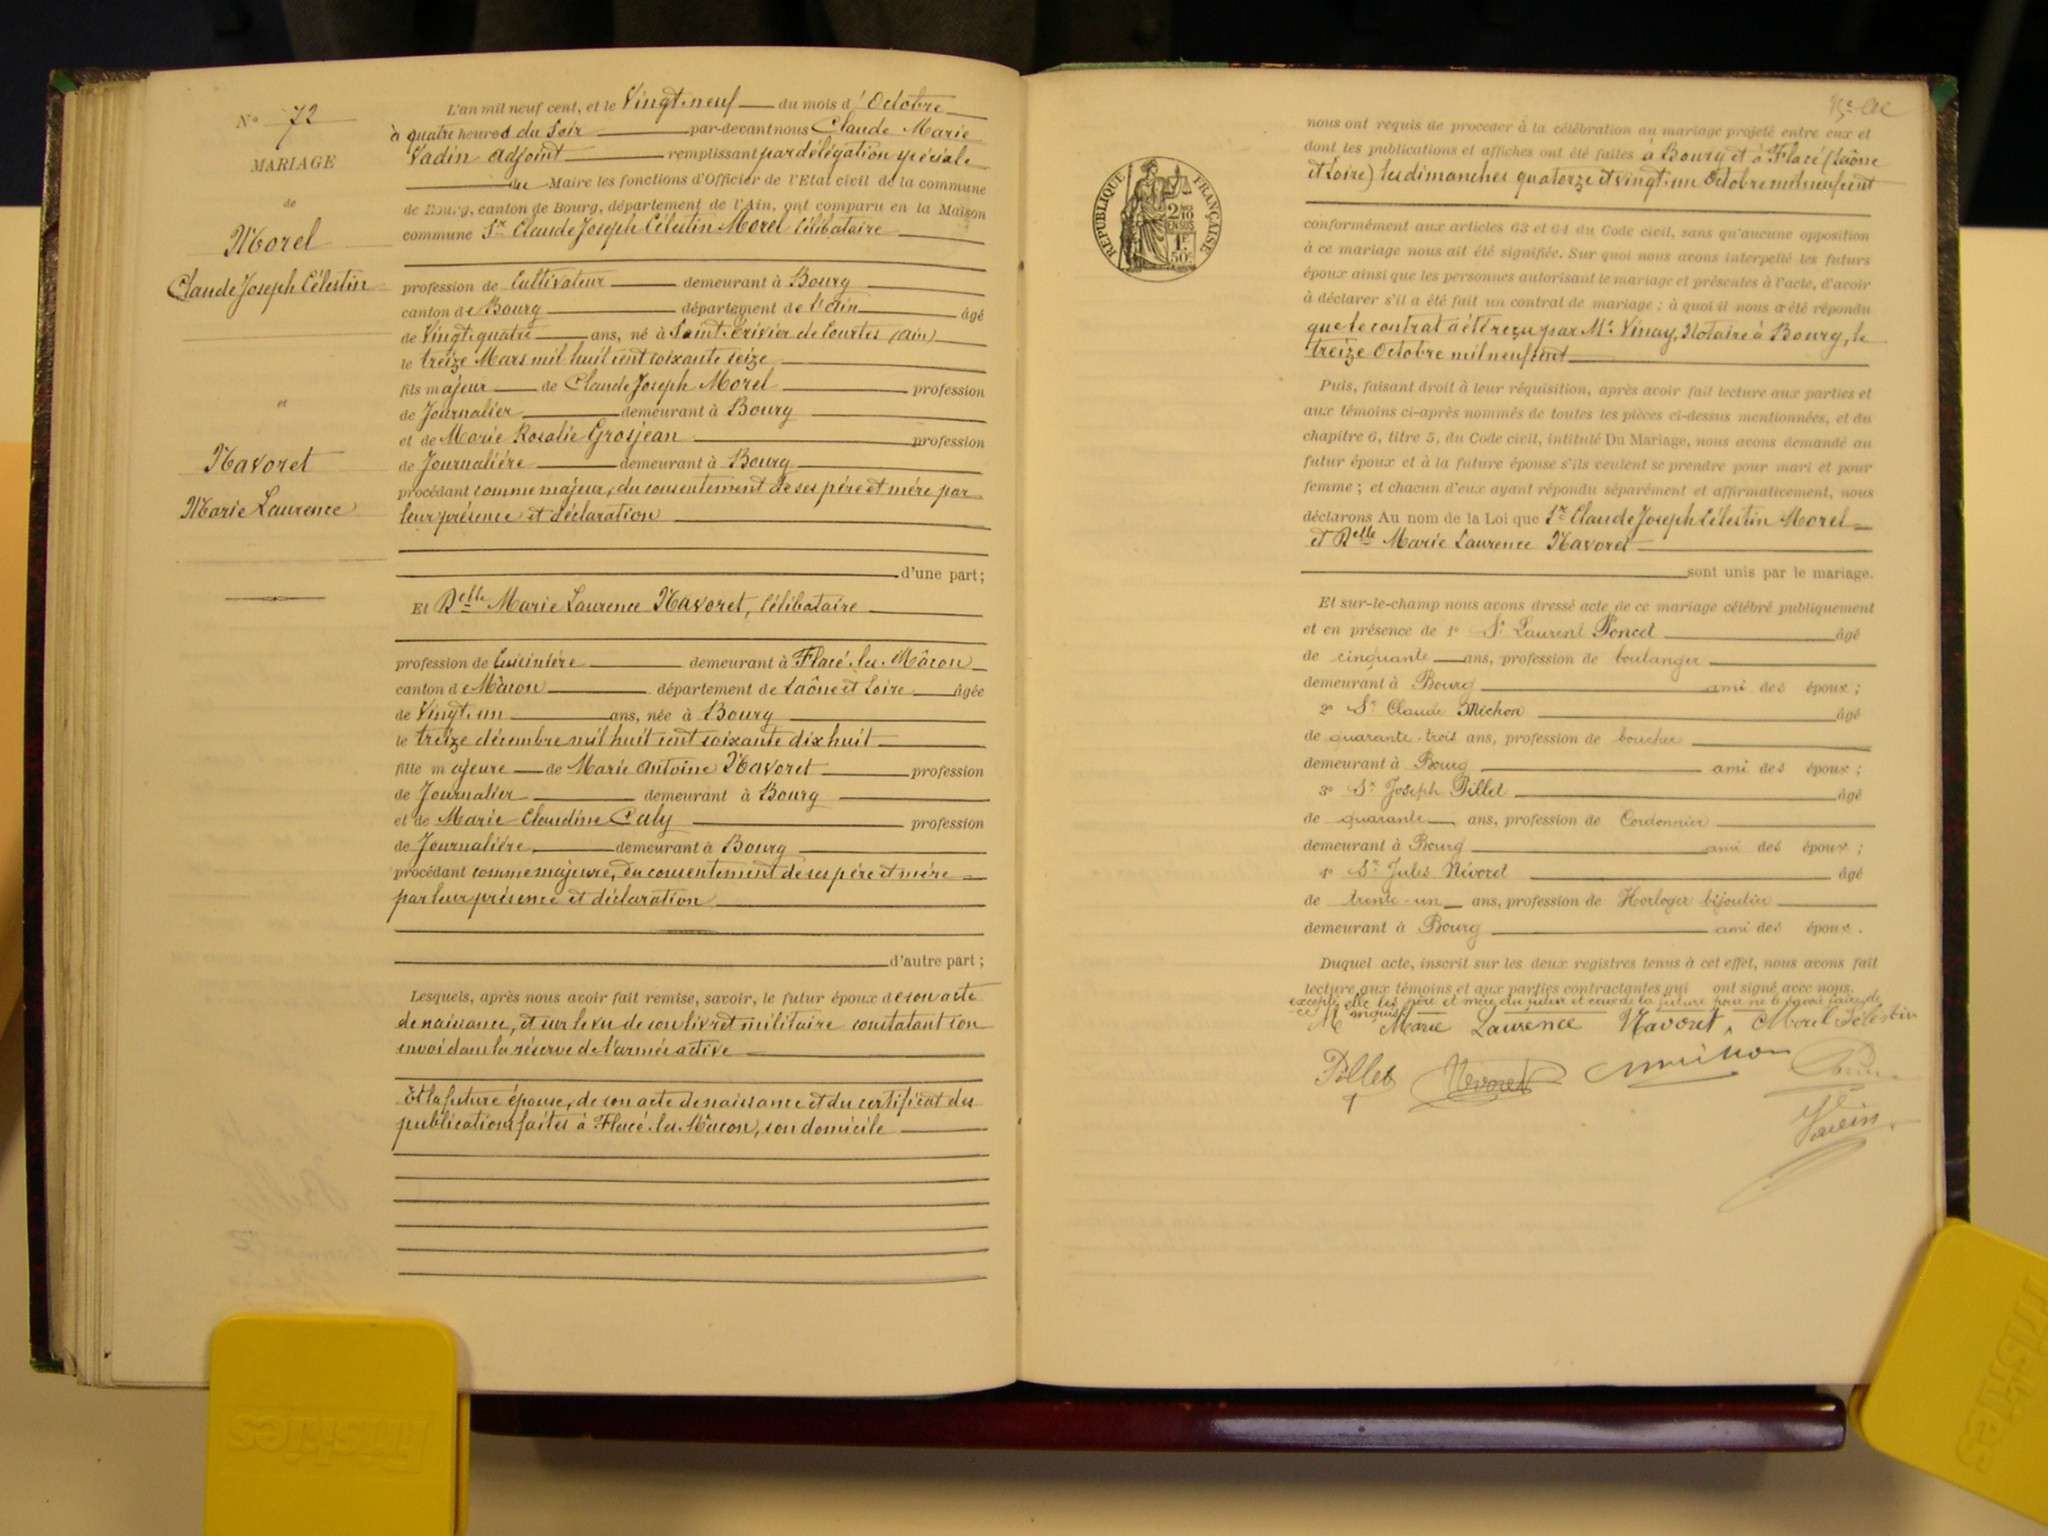 N° 72
MARIAGE
de
Morel
Claude Joseph Célestin
et
Navoret
Marie Laurence
L'an mil neuf cent, et le Vingt-neuf du mois d'Octobre
à quatre heures du Soir par-devant nous Claude Marie
Vadin adjoint remplissant par délégation spéciale
du Maire les fonctions d'Officier de l'Etat civil de la commune
de Bourg, canton de Bourg, département de l'Ain, ont comparu en la Maison
commune Sr Claude Joseph Célestin Morel célibataire
profession de Cultivateur demeurant à Bourg
canton de Bourg département de l'ain âgé
de Vingt quatre ans, né à Saint Trivier de Courtes (ain)
le treize Mars mil huit cent soixante seize
fils majeur de Claude Joseph Morel profession
de Journalier demeurant à Bourg
et de Marie Rosalie Grosjean profession
de Journalière demeurant à Bourg
procédant comme majeur, du consentement de ses père et mère par
leur présence et déclaration
d'une part;
Et Delle Marie Laurence Navoret, célibataire
profession de Cuisinière demeurant à Flacé-les-Mâcon
canton de Mâcon département de Saône et Loire âgée
de Vingt-un ans, née à Bourg
le treize décembre mil huit cent soixante dix huit
fille majeure de Marie Antoine Navoret profession
de Journalier demeurant à Bourg
et de Marie Claudine Caly profession
de Journalière demeurant à Bourg
procédant comme majeure, du consentement de ses père et mère
par leur présence et déclaration
d'autre part;
Lesquels, après nous avoir fait remise, savoir, le futur époux de son acte
de naissance, et sur le vu de son livret militaire constatant son
envoi dans la réserve de l'armée active
Et la future épouse, de son acte de naissance et du certificat des
publications faites à Flacé-les-Mâcon, son domicile
RÉPUBLIQUE FRANÇAISE
2 10 EN SUS
1F 50c
nous ont requis de procéder à la célébration du mariage projeté entre eux et
dont les publications et affiches ont été faites à Bourg et à Flacé (Saône
et Loire) les dimanches quatorze et vingt-un Octobre mil neuf cent
conformément aux articles 63 et 64 du Code civil, sans qu'aucune opposition
à ce mariage nous ait été signifiée. Sur quoi nous avons interpellé les futurs
époux ainsi que les personnes autorisant le mariage et présentes à l'acte, d'avoir
à déclarer s'il a été fait un contrat de mariage; à quoi il nous a été répondu
que le contrat a été reçu par Me Vinay, Notaire à Bourg, le
treize Octobre mil neuf cent
Puis, faisant droit à leur réquisition, après avoir fait lecture aux parties et
aux témoins ci-après nommés de toutes les pièces ci-dessus mentionnées, et du
chapitre 6, titre 5, du Code civil, intitulé Du Mariage, nous avons demandé au
futur époux et à la future épouse s'ils veulent se prendre pour mari et pour
femme; et chacun d'eux ayant répondu séparément et affirmativement, nous
déclarons Au nom de la Loi que Sr Claude Joseph Célestin Morel
et Delle Marie Laurence Navoret
sont unis par le mariage.
Et sur-le-champ nous avons dressé acte de ce mariage célébré publiquement
et en présence de 1° Sr Laurent Poncet âgé
de cinquante ans, profession de boulanger
demeurant à Bourg ami des époux;
2° Sr Claude Michon âgé
de quarante-trois ans, profession de boucher
demeurant à Bourg ami des époux;
3° Sr Joseph Pillet âgé
de quarante ans, profession de Cordonnier
demeurant à Bourg ami des époux;
4° Sr Jules Névoret âgé
de trente-un ans, profession de Horloger bijoutier
demeurant à Bourg ami des époux.
Duquel acte, inscrit sur les deux registres tenus à cet effet, nous avons fait
lecture aux témoins et aux parties contractantes qui ont signé avec nous.
excepté les père et mère du futur et ceux de la future pour ne le savoir faire de
ce enquis
Marie Laurence Navoret Morel Célestin
Pillet Nevoret Michon
Vadin